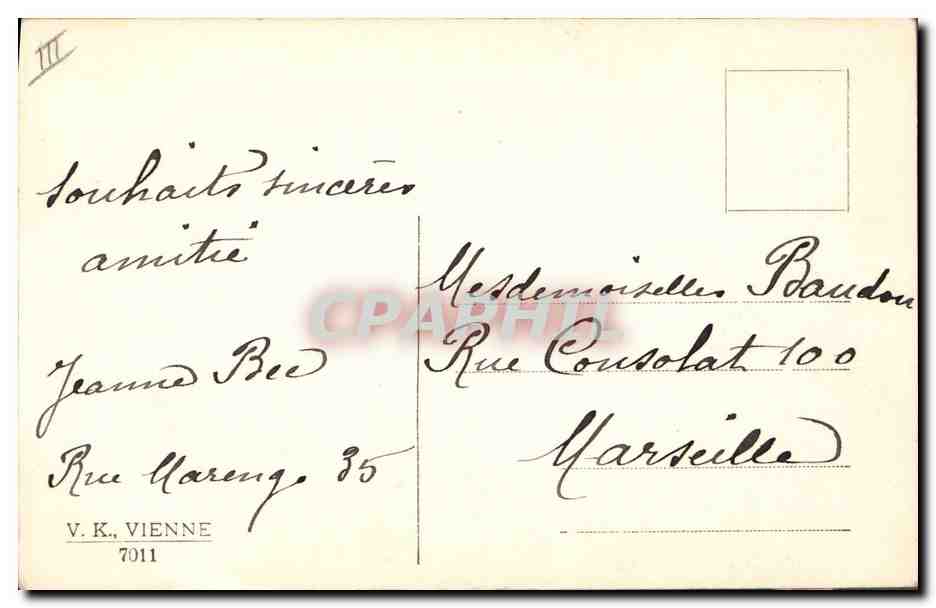 III
souhaits sincères
amitié
Jeanne Bec
Rue Marengo 35
V. K., VIENNE
7011
Mesdemoiselles Baudon
Rue Consolat 100
Marseille
CPAPHIL